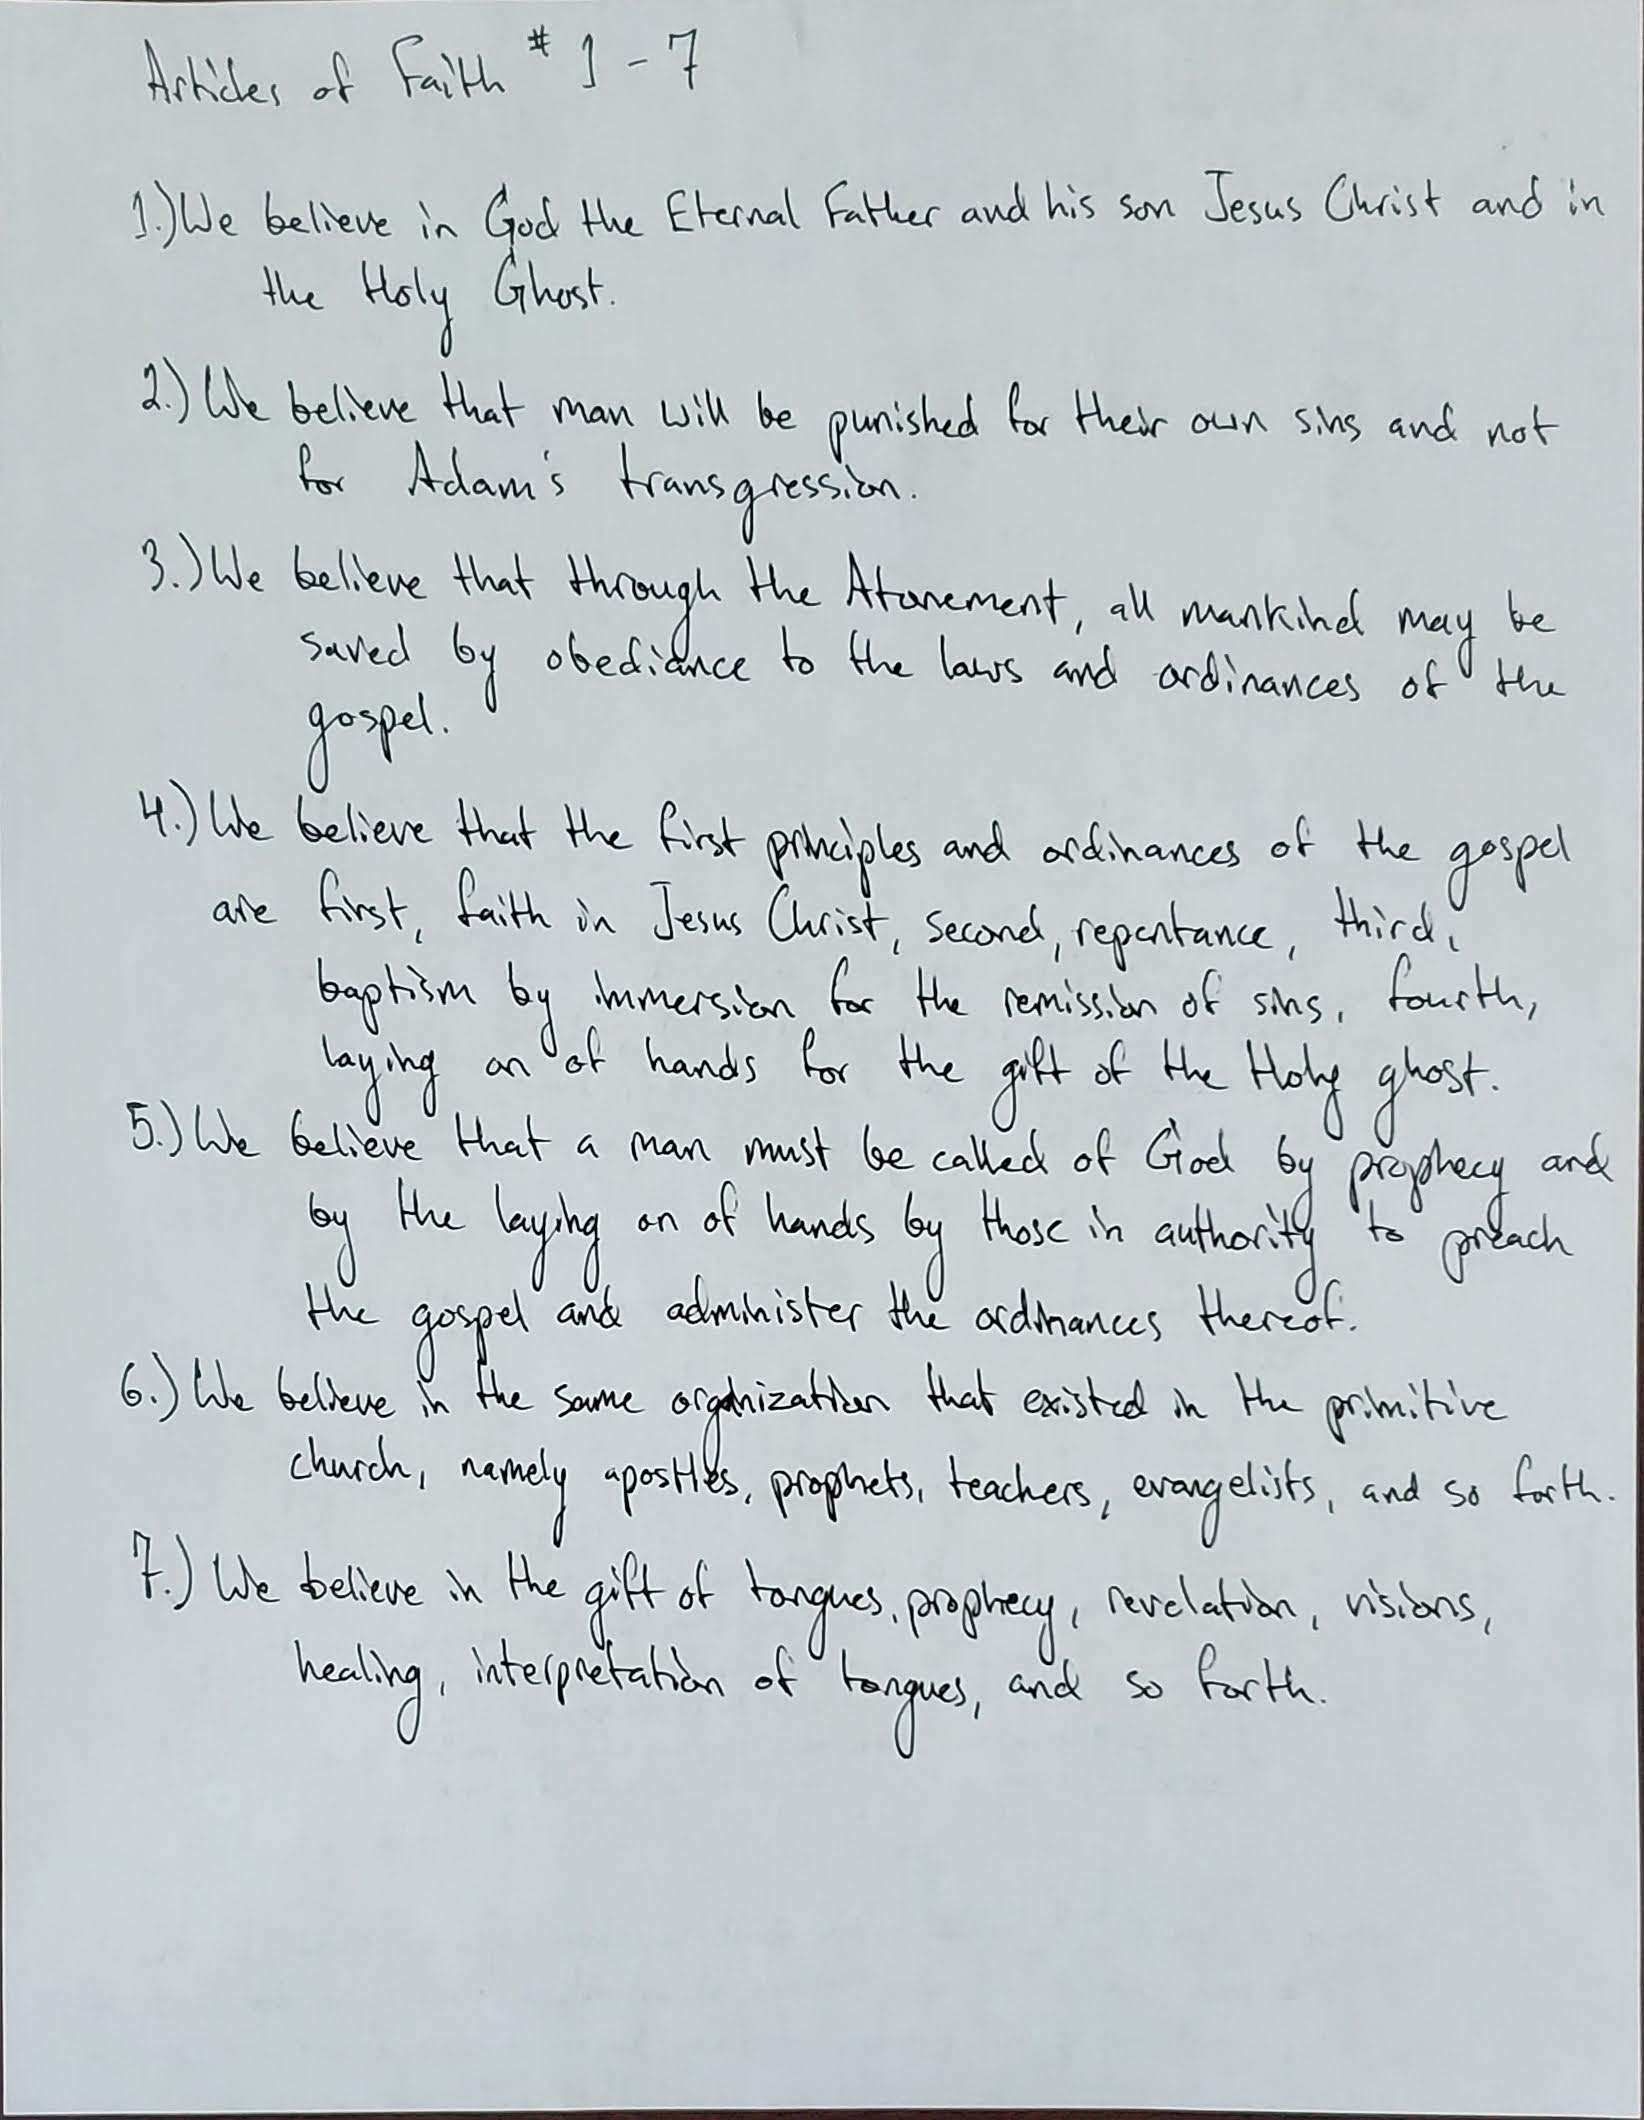 Articles of Faith # 1-7
1.) We believe in God the Eternal Father and his son Jesus Christ and in
the Holy Ghost.
2.) We believe that man will be punished for their own sins and not
for Adam's transgression.
3.) We believe that through the Atonement, all mankind may be
saved by obediance to the laws and ordinances of the
gospel.
4.) We believe that the first principles and ordinances of the gospel
are first, faith in Jesus Christ, second, repentance, third,
baptism by immersion for the remission of sins, fourth,
laying on of hands for the gift of the Holy ghost.
5.) We believe that a man must be called of God by prophecy and
by the laying on of hands by those in authority to preach
the gospel and administer the ordinances thereof.
6.) We believe in the same organization that existed in the primitive
church, namely apostles, prophets, teachers, evangelists, and so forth.
7.) We believe in the gift of tongues, prophecy, revelation, visions,
healing, interpretation of tongues, and so forth.